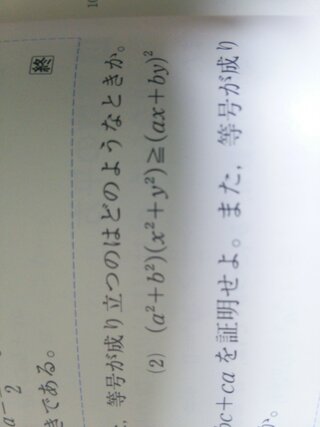 a-
2
きである。
終
等号が成り立つのはどのようなときか。
(2) (a²+b²)(x²+y²)≧(ax+by)²
c+ca を証明せよ。また，等号が成り
か。